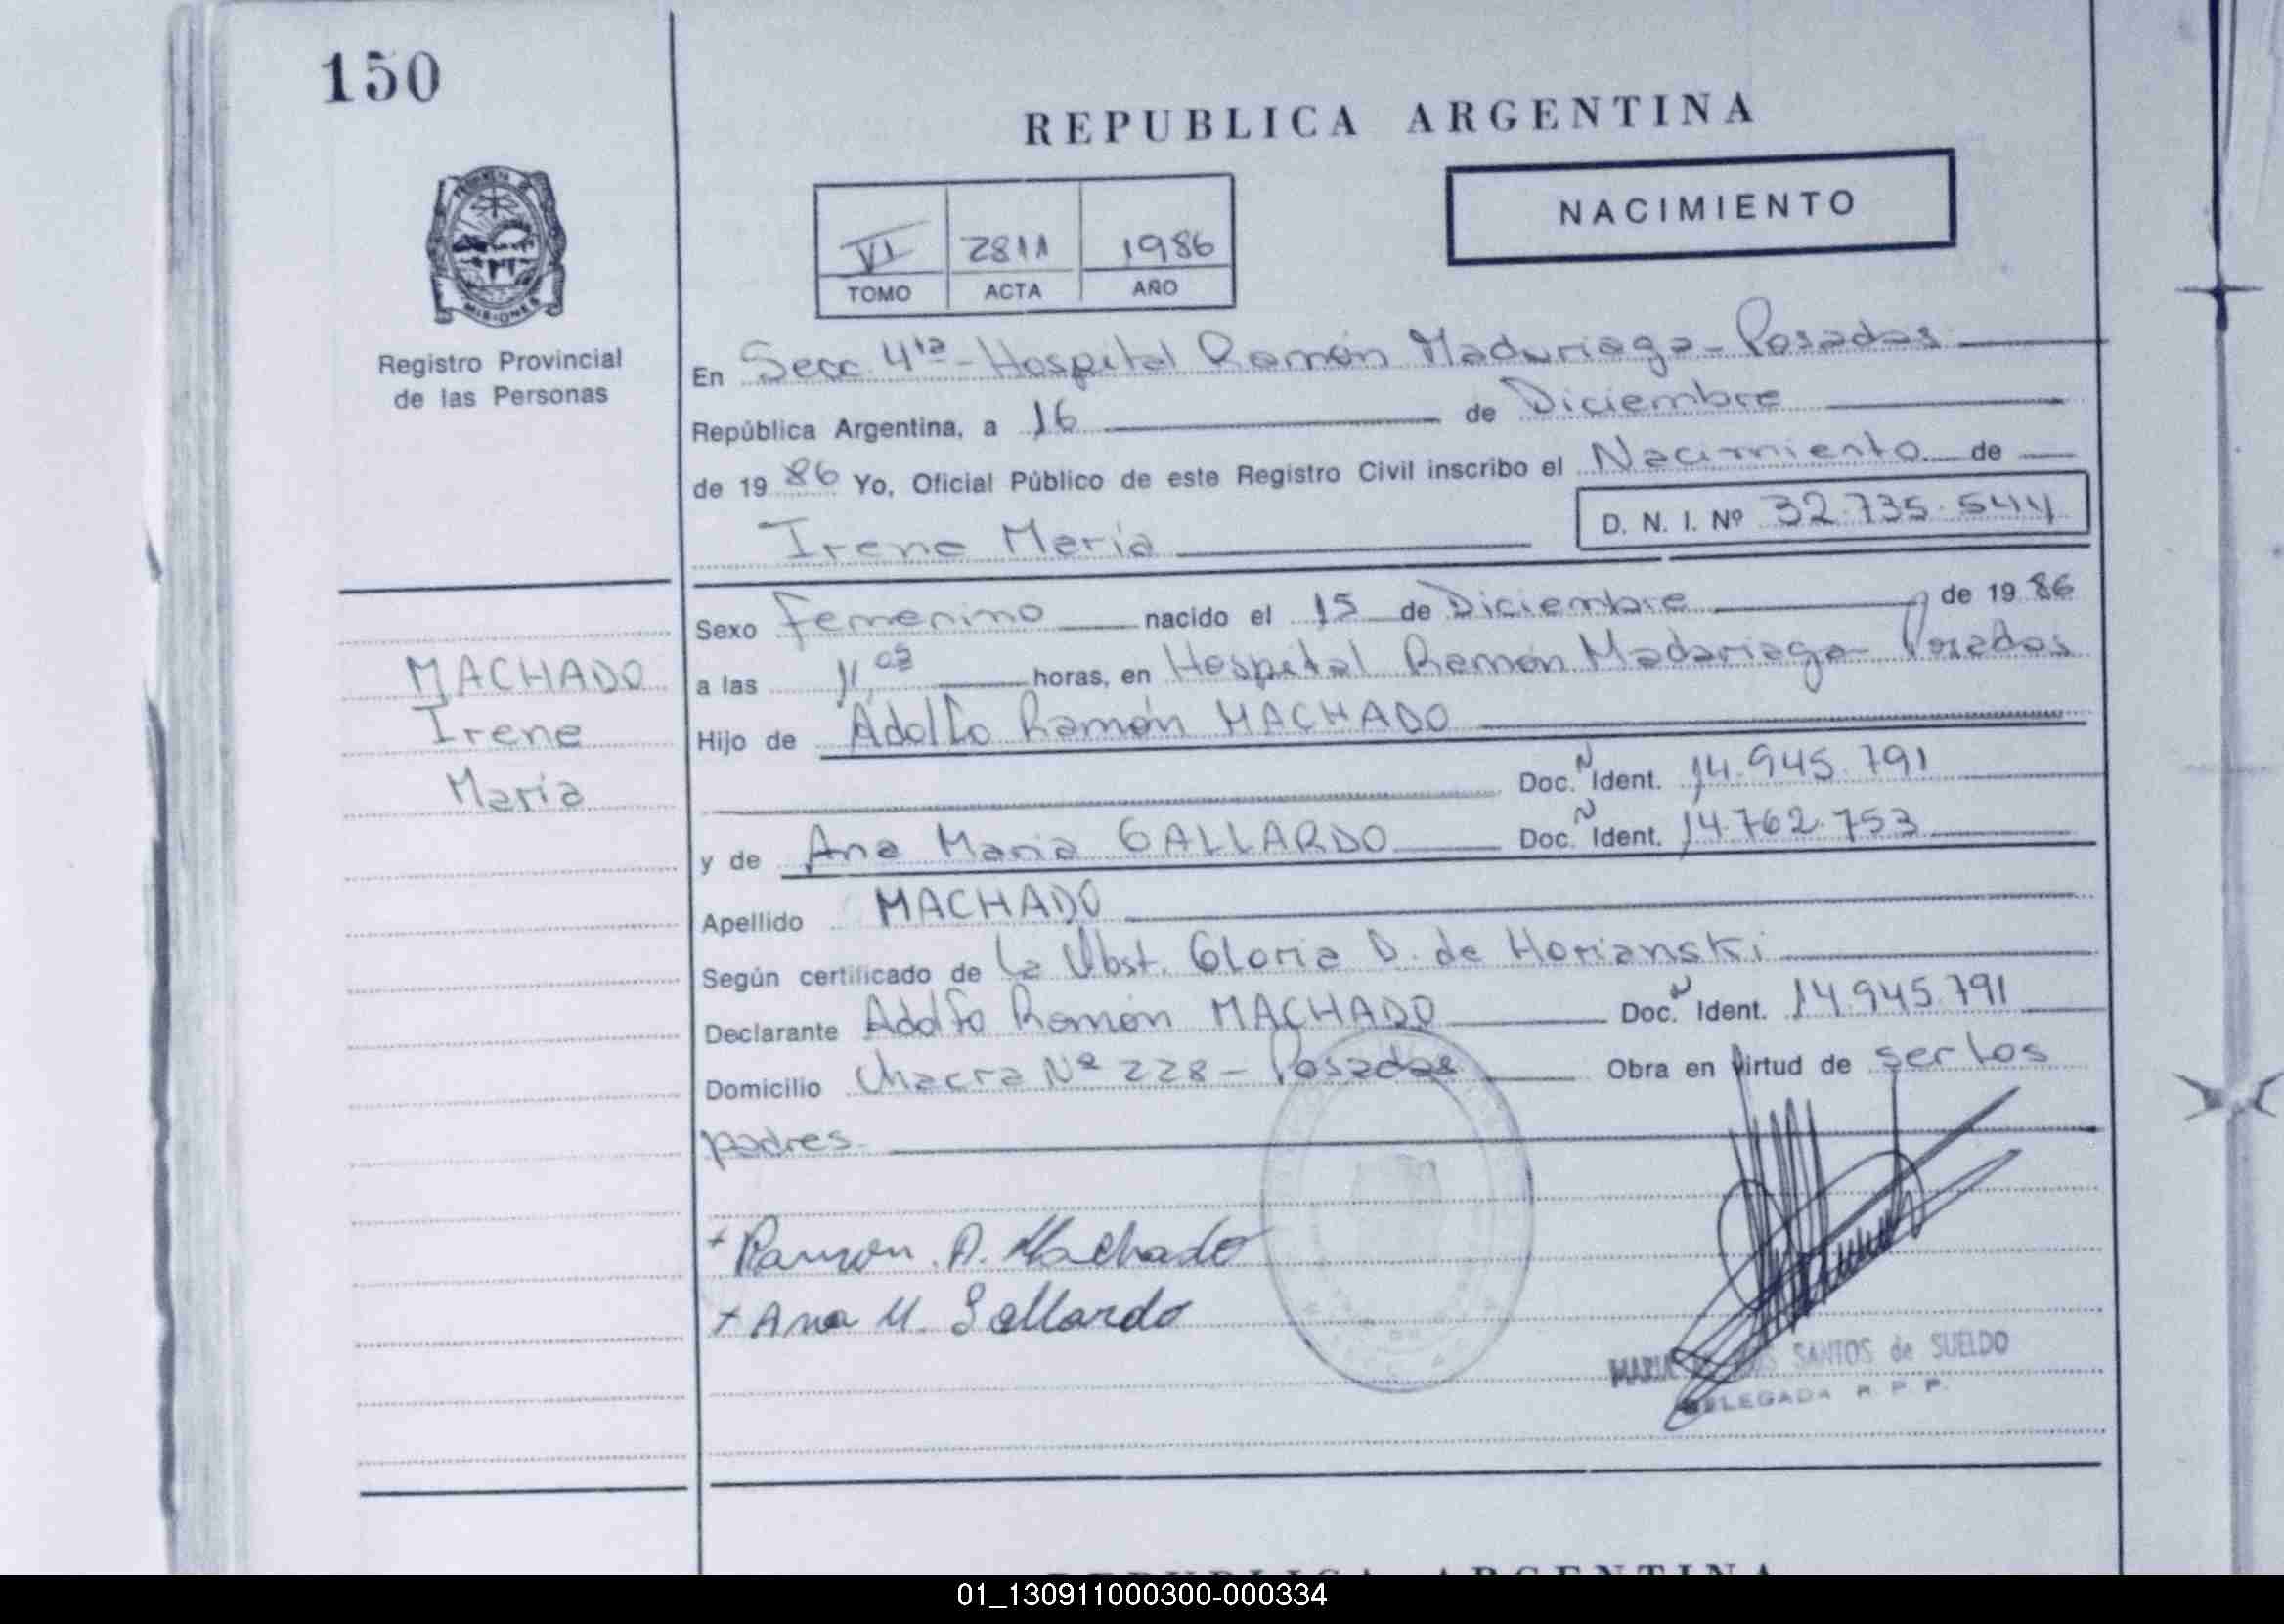 150
REPUBLICA ARGENTINA
NACIMIENTO
VI 2811 1986
TOMO ACTA AÑO
MISIONES
Registro Provincial
de las Personas
En Secc. 4ta - Hospital Ramón Madariaga - Posadas
República Argentina, a 16 de Diciembre
de 1986 Yo, Oficial Público de este Registro Civil inscribo el Nacimiento de
Irene María
D. N. I. Nº 32.735.544
MACHADO
Irene
María
Sexo femenino nacido el 15 de Diciembre de 1986
a las 11, horas, en Hospital Ramón Madariaga - Posadas
Hijo de Adolfo Ramón MACHADO
Doc. N Ident. 14.945.791
y de Ana María GALLARDO Doc. N Ident. 14.762.753
Apellido MACHADO
Según certificado de la Obst. Gloria D. de Horianski
Declarante Adolfo Ramón MACHADO Doc. N Ident. 14.945.791
Domicilio Chacra Nº 228 - Posadas Obra en virtud de ser los
padres
+ Ramon A. Machado
+ Ana M. Gallardo
MARIA SANTOS de SUELDO
DELEGADA R. P. P.
REPUBLICA ARGENTINA
01_130911000300-000334